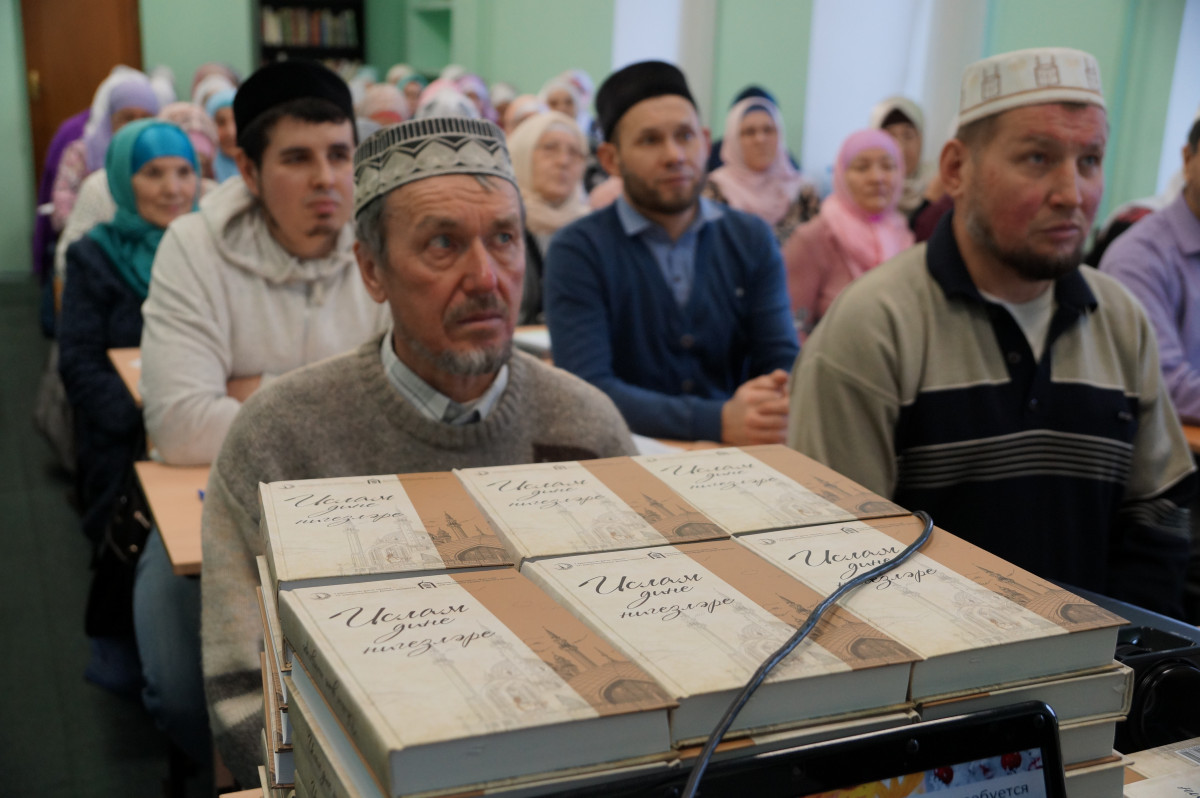 Ислам
дине
нигезләре
Ислам
дине
нигезләре
Ислам
дине
нигезләре
Ислам
дине
нигезләре
Ислам
дине
нигезләре
Ислам
дине
нигезләре